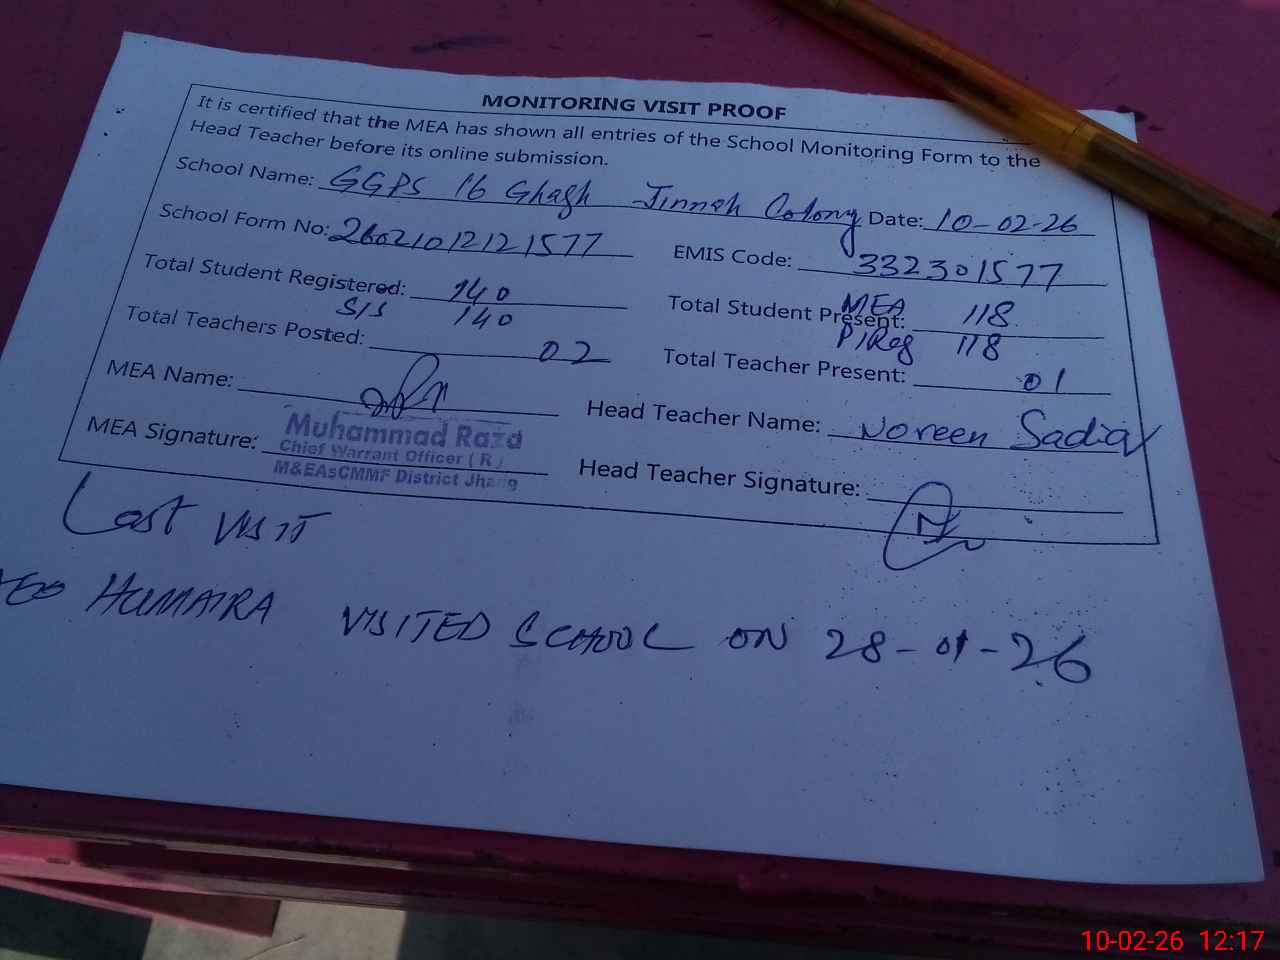 MONITORING VISIT PROOF
It is certified that the MEA has shown all entries of the School Monitoring Form to the
Head Teacher before its online submission.
School Name: GGPS 16 Ghagh Jinnah Colony Date: 10-02-26
School Form No: 26021012121577 EMIS Code: 332301577
Total Student Registered: 140 Total Student Present: MEA 118
S/S 140 P/Reg 118
Total Teachers Posted: 02 Total Teacher Present: 01
MEA Name: Head Teacher Name: Noreen Sadia
MEA Signature: Head Teacher Signature:
Muhammad Raza
Chief Warrant Officer (R)
M&EAsCMMF District Jhang
Last VISIT
HUMAIRA VISITED SCHOOL ON 28-01-26
10-02-26 12:17